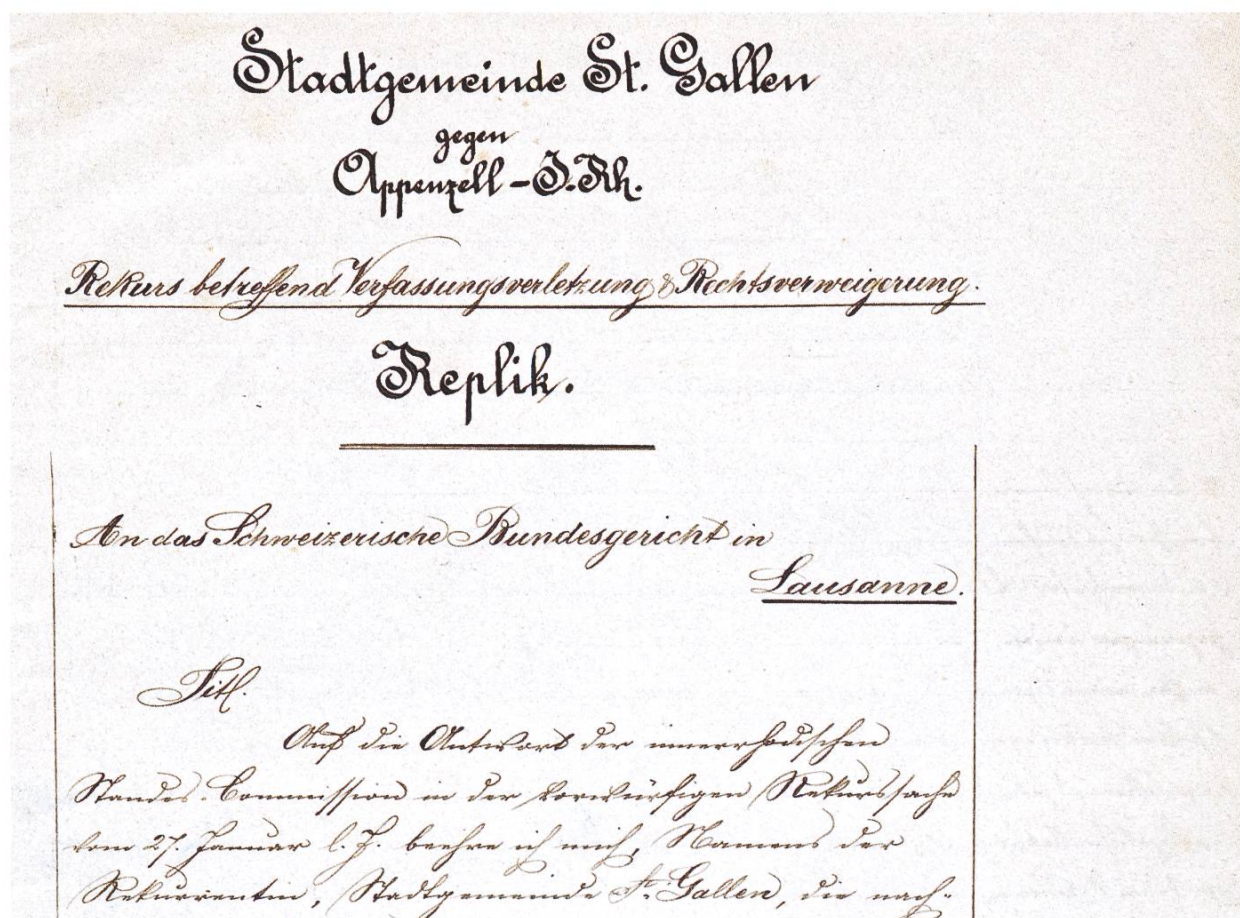 Stadtgemeinde St. Gallen
gegen
Appenzell-I.Rh.
Rekurs betreffend Verfassungsverletzung & Rechtsverweigerung.
Replik.
An das Schweizerische Bundesgericht in
Lausanne.
Titl.
Auf die Antwort der innerrhodischen
Standes-Commission in der vorwürfigen Rekurssache
vom 27. Januar l. J. beehre ich mich, Namens der
Rekurrentin, Stadtgemeinde St. Gallen, die nach-